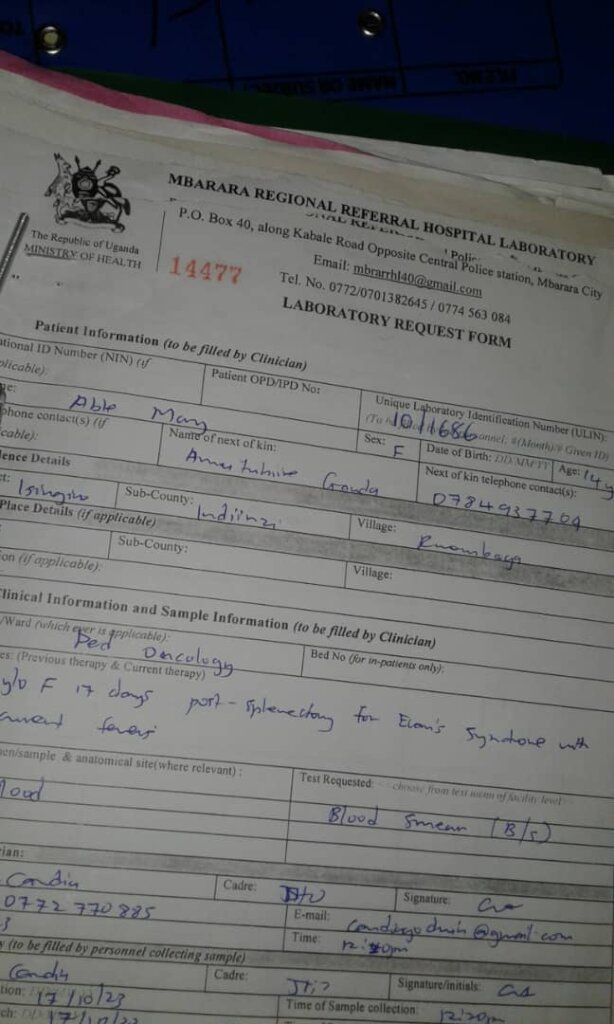 MBARARA REGIONAL REFERRAL HOSPITAL LABORATORY
P.O. Box 40, along Kabale Road Opposite Central Police station, Mbarara City
The Republic of Uganda
MINISTRY OF HEALTH
14477
Email: mbrarrhl40@gmail.com
Tel. No. 0772/0701382645 / 0774 563 084
LABORATORY REQUEST FORM
Patient Information (to be filled by Clinician)
ational ID Number (NIN) (if
plicable):
Patient OPD/IPD No:
Unique Laboratory Identification Number (ULIN):
1011686
Able Mary
Sex: F
Date of Birth: DD/MM/YY
Age: 14y
phone contact(s) (if
cable):
Name of next of kin:
Next of kin telephone contact(s):
0784937709
dence Details
Isingiro
Sub-County:
Village:
Place Details (if applicable)
Sub-County:
Village:
ion (if applicable):
linical Information and Sample Information (to be filled by Clinician)
/Ward (which ever is applicable):
Ped Oncology
Bed No (for in-patients only):
es: (Previous therapy & Current therapy)
y/o F 17 days post-splenectomy for Evan's Syndrome with
fevers
en/sample & anatomical site(where relevant):
Test Requested: choose from test menu of facility level
lood
Blood smear (B/s)
cian:
Candia
Cadre:
Signature:
0772 770885
E-mail:
@gmail.com
Time:
y (to be filled by personnel collecting sample)
Candia
Cadre:
Signature/initials:
tion: 17/10/23
Time of Sample collection: 12:20pm
ch: 17/10/23